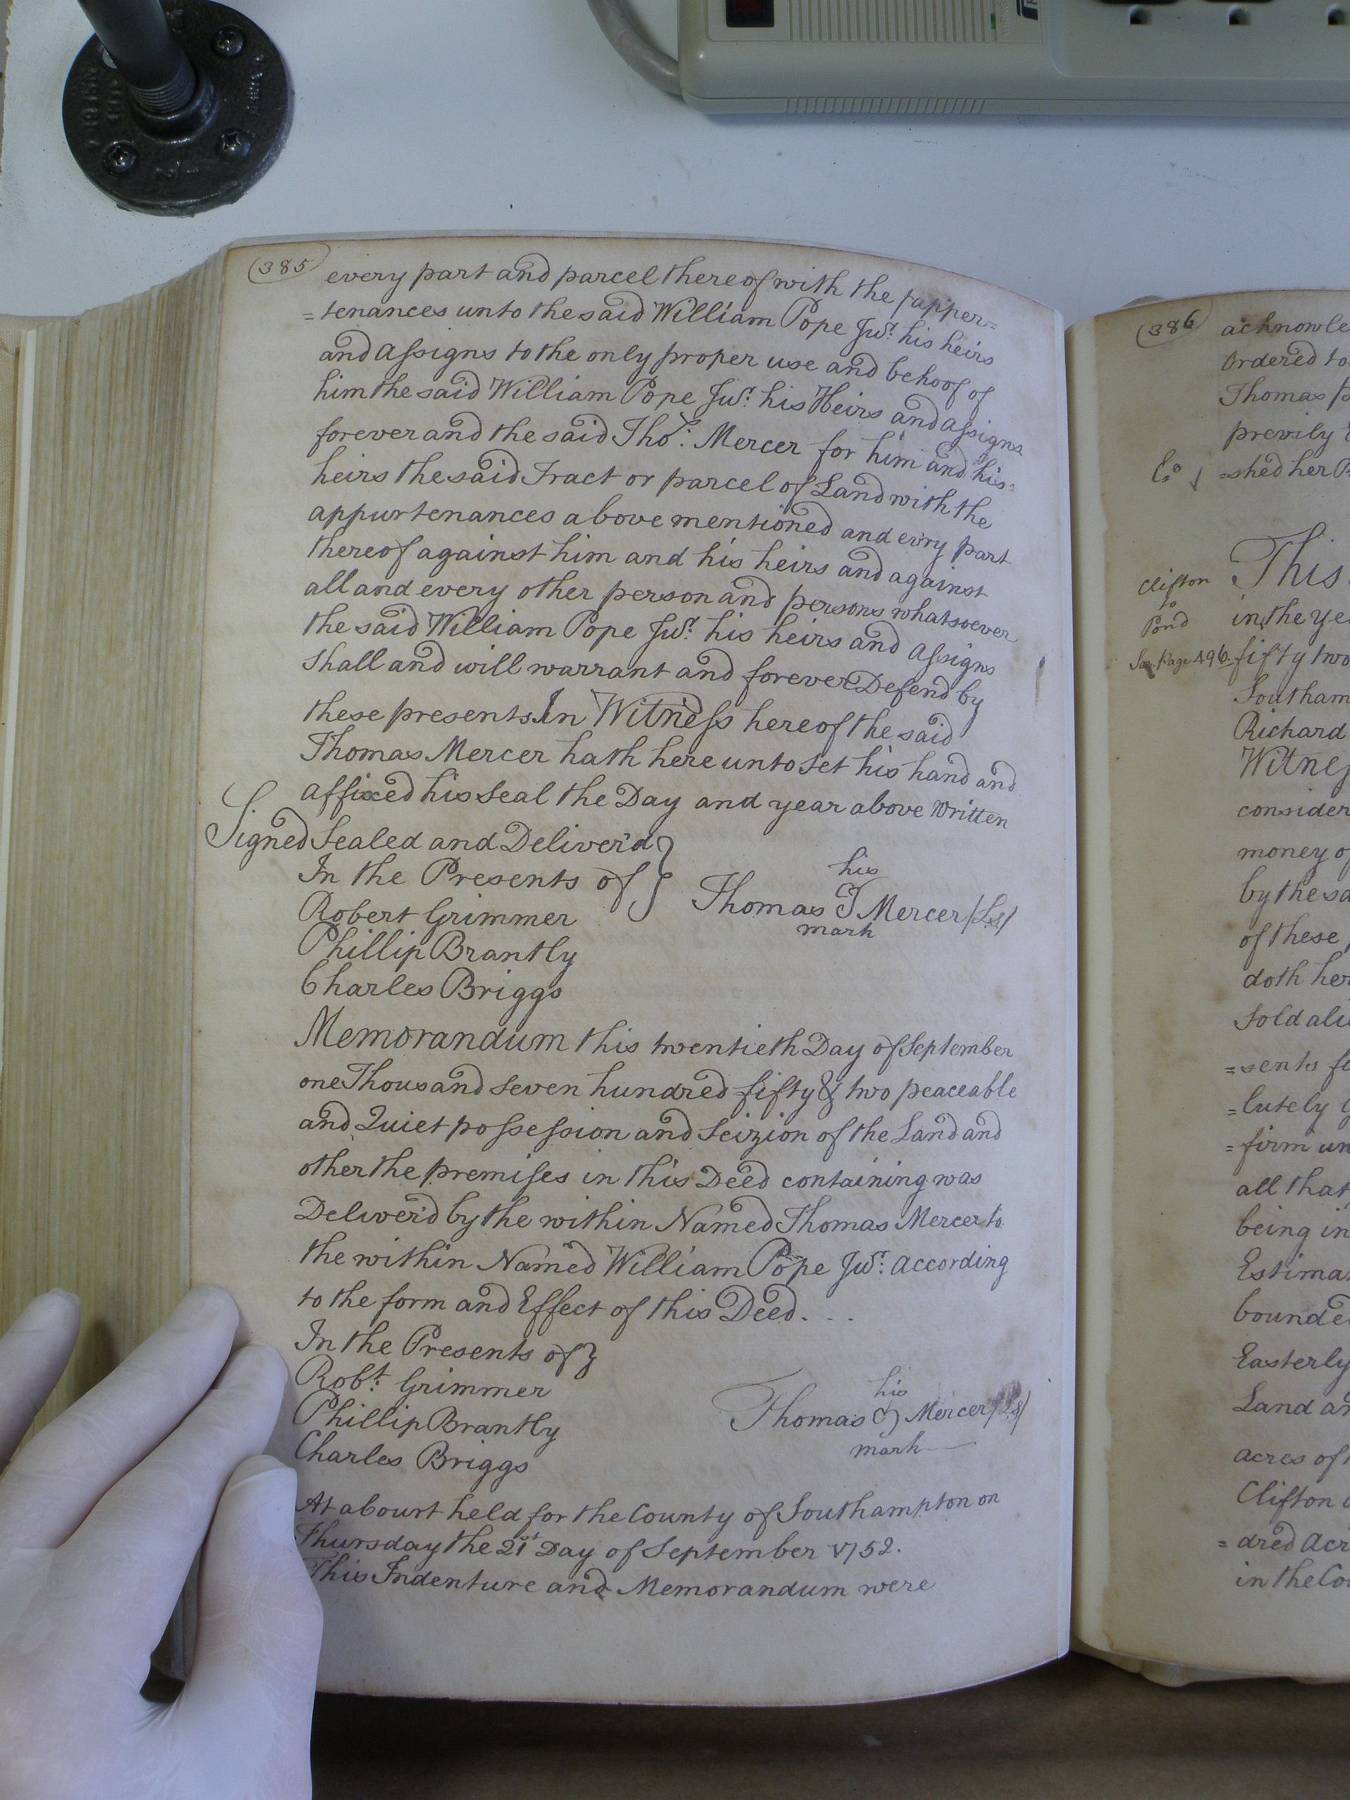 (385)
every part and parcel thereof with the apper=
=tenances unto the said William Pope Junr: his heirs
and assigns to the only proper use and behoof of
him the said William Pope Junr: his Heirs and assigns
forever and the said Thos: Mercer for him and his
heirs the said Tract or parcel of Land with the
appurtenances above mentioned and evry part
thereof against him and his heirs and against
all and every other person and persons whatsoever
the said William Pope Junr: his heirs and assigns
Shall and will warrant and forever Defend by
these presents In Witness hereof the said
Thomas Mercer hath here unto set his hand and
affixed his Seal the Day and year above written
Signed Sealed and Deliver'd
In the Presents of
Robert Grimmer
Phillip Brantly
Charles Briggs
his
Thomas Mercer (LS)
mark
Memorandum this twentieth Day of September
one Thousand Seven hundred fifty & two peaceable
and Quiet possession and Seizion of the Land and
other the premises in this Deed containing was
Deliver'd by the within Named Thomas Mercer to
the within Named William Pope Junr: according
to the form and Effect of this Deed. . .
In the Presents of
Robt: Grimmer
Phillip Brantly
Charles Briggs
his
Thomas Mercer (LS)
mark
At a Court held for the County of Southampton on
Thursday the 21st Day of September 1752.
This Indenture and Memorandum were
(386)
acknowle
Ordered to
Thomas
previly
=shed her
Clifton
to
Pond
This
in the ye
Page 496.
fifty two
Southam
Richard
Witnes
consider
money of
by the sa
of these
doth her
Sold ali
=sents f
=lutely
=firm un
all that
being in
Estima
bounded
Easterly
Land an
acres of
Clifton
=dred Acr
in the Co